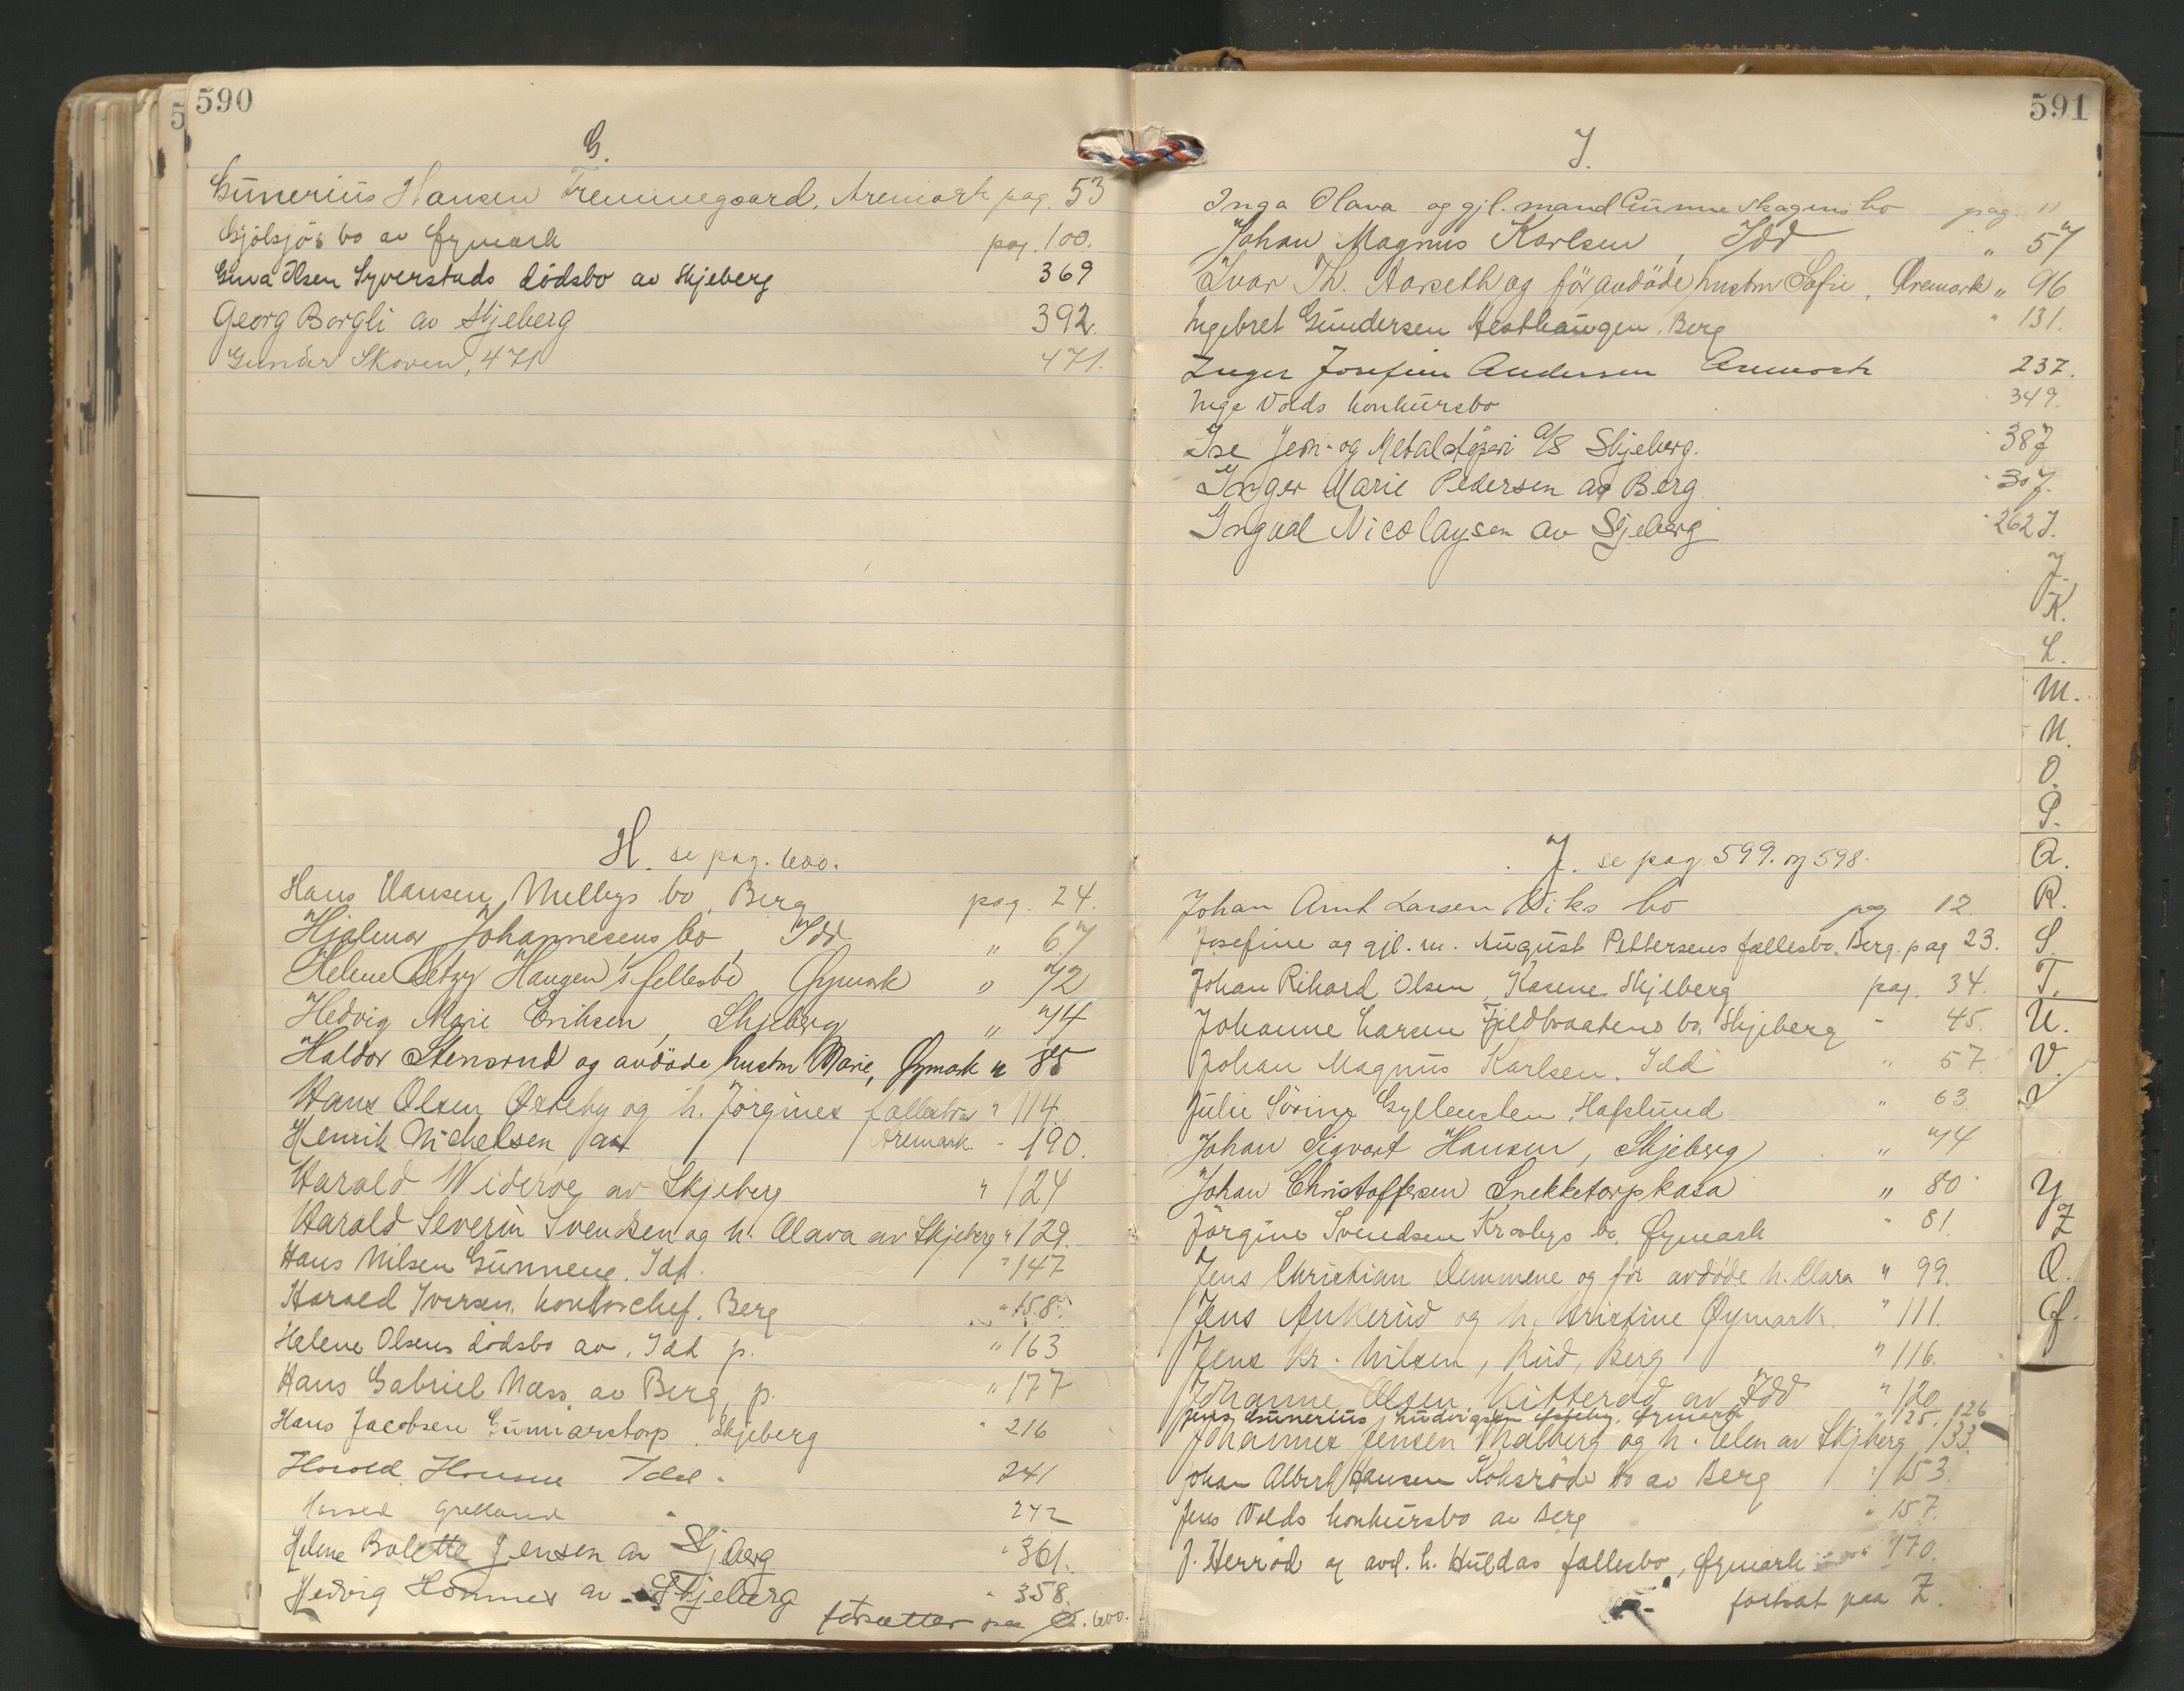 590
G.
Gunerius Hansen Fremmegaard, Aremark pag. 53
Gjølsjøs bo av Øymark pag. 100.
Olsen Syverstads dødsbo av Skjeberg 369
Georg Borgli av Skjeberg 392.
Gunnar Skoven, 471 471.
H. se pag. 600.
Hans Hansen Mellbys bo, Berg pag. 24.
Hjalmar Johannesens bo, Idd " 67
Helene Betzy Haugen's fellesbo Øymark " 72
Hedvig Marie Eriksen, Skjeberg " 74
Haldor Stensrud og avdøde hustru Marie, Øymark " 85
Hans Olsen Østeby og h. Jørgines fællesbo " 114
Henrik Michelsen Aremark - 190.
Harald Widerøe av Skjeberg " 124
Harald Severin Svendsen og h. Olava av Skjeberg " 129.
Hans Nilsen Gunnene, Idd. " 147
Harald Iversen, kontorchef, Berg " 158.
Helene Olsens dødsbo av Idd p. " 163
Hans Gabriel Næss av Berg p. " 177
Hans Jacobsen Gunnarstorp, Skjeberg " 216
Harald Hansen Idd. 241
Grelland " 242
Helene Bolette Jensen av Skjeberg " 361.
Hedvig Hommes av Skjeberg " 358.
forsætter paa 600.
591
I.
Inga Olava og gjl. mand Gunne Skagens bo pag. "
Johan Magnus Karlsen, Idd " 57
Ivar Th. Aarseth og før avdøde hustru Sofie, Aremark " 96
Ingebret Gundersen Hesthaugen, Berg " 131.
Inger Josefine Andersen Aremark 237.
Inga Volds konkursbo 349.
Ise Jern- og Metalstøperi A/S Skjeberg. 387
Inger Marie Pedersen av Berg 307.
Ingvald Nicolaysen av Skjeberg 262
J. se pag 599. og 598.
Johan Arnt Larsen Viks bo pag 12
Josefine og gjl. m. August Pettersens fællesbo. Berg. pag 23.
Johan Rikard Olsen, Kasene Skjeberg pag. 34.
Johanne Larsen Fjeldbraatens bo. Skjeberg - 45.
Johan Magnus Karlsen. Idd " 57.
Julie Sørine Gyllensten, Hafslund " 63
Johan Sigvart Hansen, Skjeberg " 74
Johan Christoffersen Snekketorpkasa " 80
Jørgine Svendsen Krosbys bo, Øymark " 81.
Jens Christian Lemmene og før avdøde h. Clara " 99.
Jens Ankerud og h. Kristine Øymark. " 111.
Jens Kr. Nilsen, Rud, Berg " 116.
Johanne Olsen Kitterød av Idd " 120
Jens Gunerius Ludvigsen Øymark " 125. 126
Johannes Jensen Thalberg og h. Elen av Skjeberg 133.
Johan Albert Hansen Koksrøds bo av Berg " 153.
Jens Volds konkursbo av Berg " 157.
J. Herrød og avd. h. Huldas fællesbo, Øymark 170.
fortsat paa Z.
I.
J.
K.
L.
M.
N.
O.
P.
Q.
R.
S.
T.
U.
V.
Y
Z
Ø.